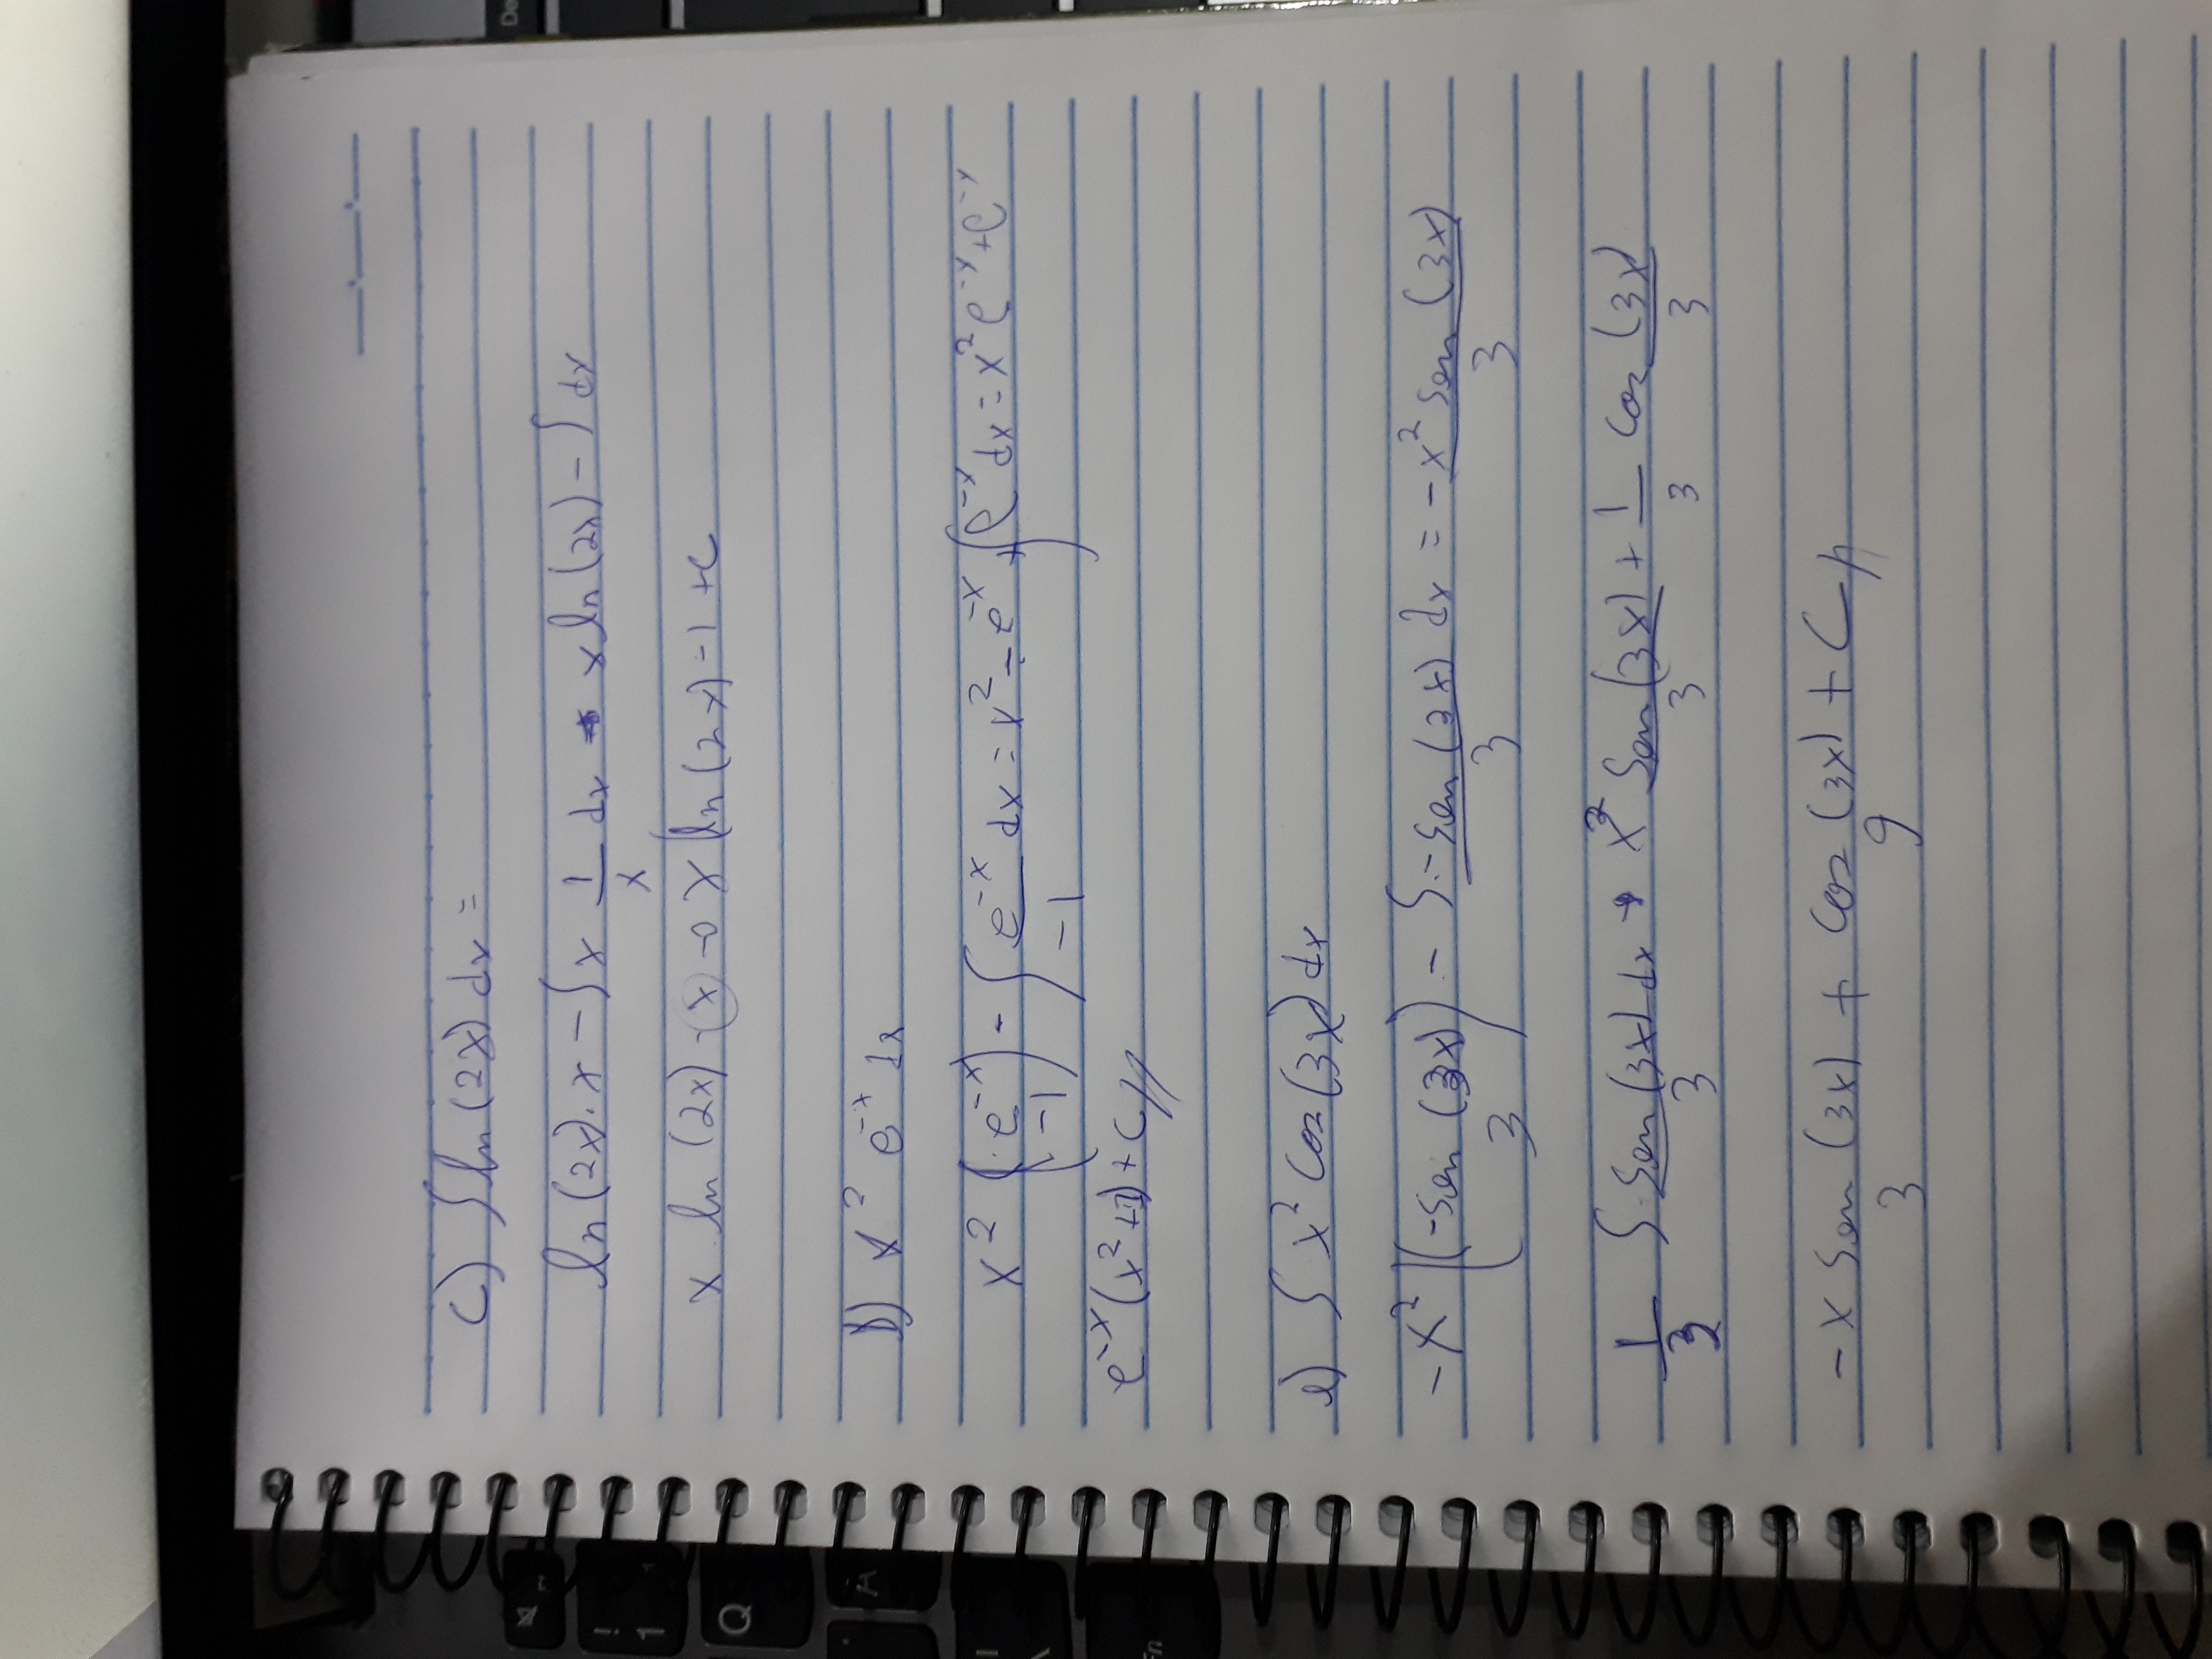 c) ∫ ln (2x) dx =
ln (2x). x - ∫ x 1/x dx → x ln (2x) - ∫ dx
x ln (2x) - x → x (ln (2x) - 1 + c
D) x² e^-x dx
x² (e^-x/-1) - ∫ e^-x/-1 dx = x² - e^-x + ∫ e^-x dx = x² e^-x + e^-x
e^-x (x² + 1) + C //
e) ∫ x² cos (3x) dx
-x² (-sen (3x)/3) - ∫ -sen (3x)/3 dx = -x² sen (3x)/3
1/3 ∫ sen (3x)/3 dx → x² sen (3x)/3 + 1/3 cos (3x)/3
-x sen (3x)/3 + cos (3x)/9 + C //
De
Q
A
Fn